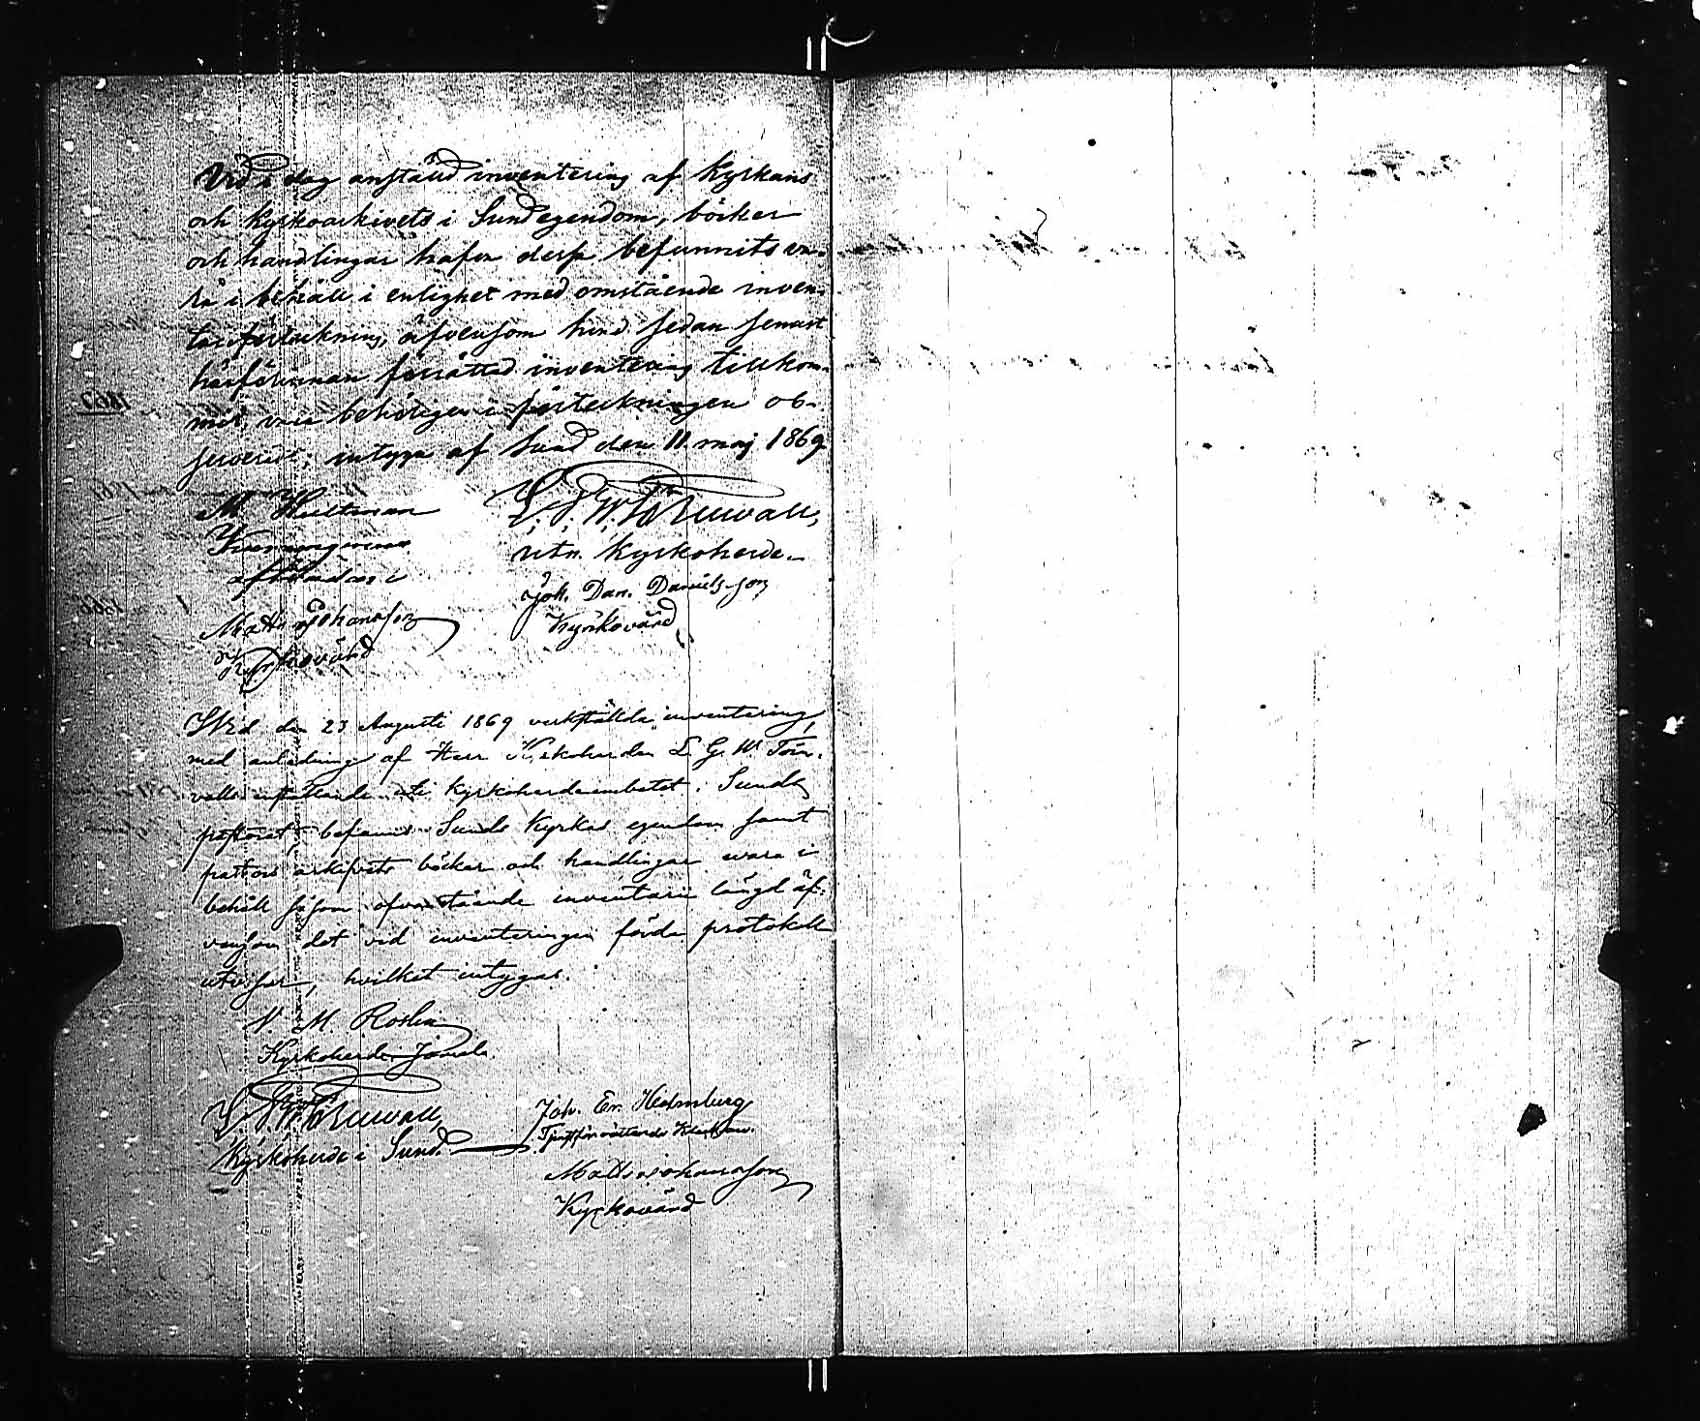 Vid i dag anstäld inventering af Kyrkans
och Kyrkoarkivets i Sund egendom, böcker
och handlingar hafva desse befunnits va-
ra i behåll i enlighet med omstående inven-
tarieförteckning, äfvensom hvad sedan senast
härförinnan förrättad inventering tillkom-
mit, vara behörigen i förteckningen ob-
serverad; intyga af Sund den 11 maj 1869
M Hultman
L. G. W. Törnvall,
utn. Kyrkoherde.
Joh. Dan. Danielsson
Kyrkovärd
Matts Johansson
Kyrkovärd
Wid den 23 Augusti 1869 verkstälda inventering,
med anledning af Herr Kyrkoherden L. G. W. Törn-
valls inträdande uti Kyrkoherdeembetet i Sunds
pastorat, befanns Sunds Kyrkas egendom samt
pastors arkivets böcker och handlingar wara i
behåll såsom ofvanstående inventarii längd äf-
vensom det vid inventeringen förda protokoll
utvisar, hvilket intygas.
N. M Rosen
Kyrkoherde i Jomala.
L. G. W. Törnvall,
Kyrkoherde i Sund.
Joh. Er. Holmberg
Matts Johansson
Kyrkovärd
1867
1866